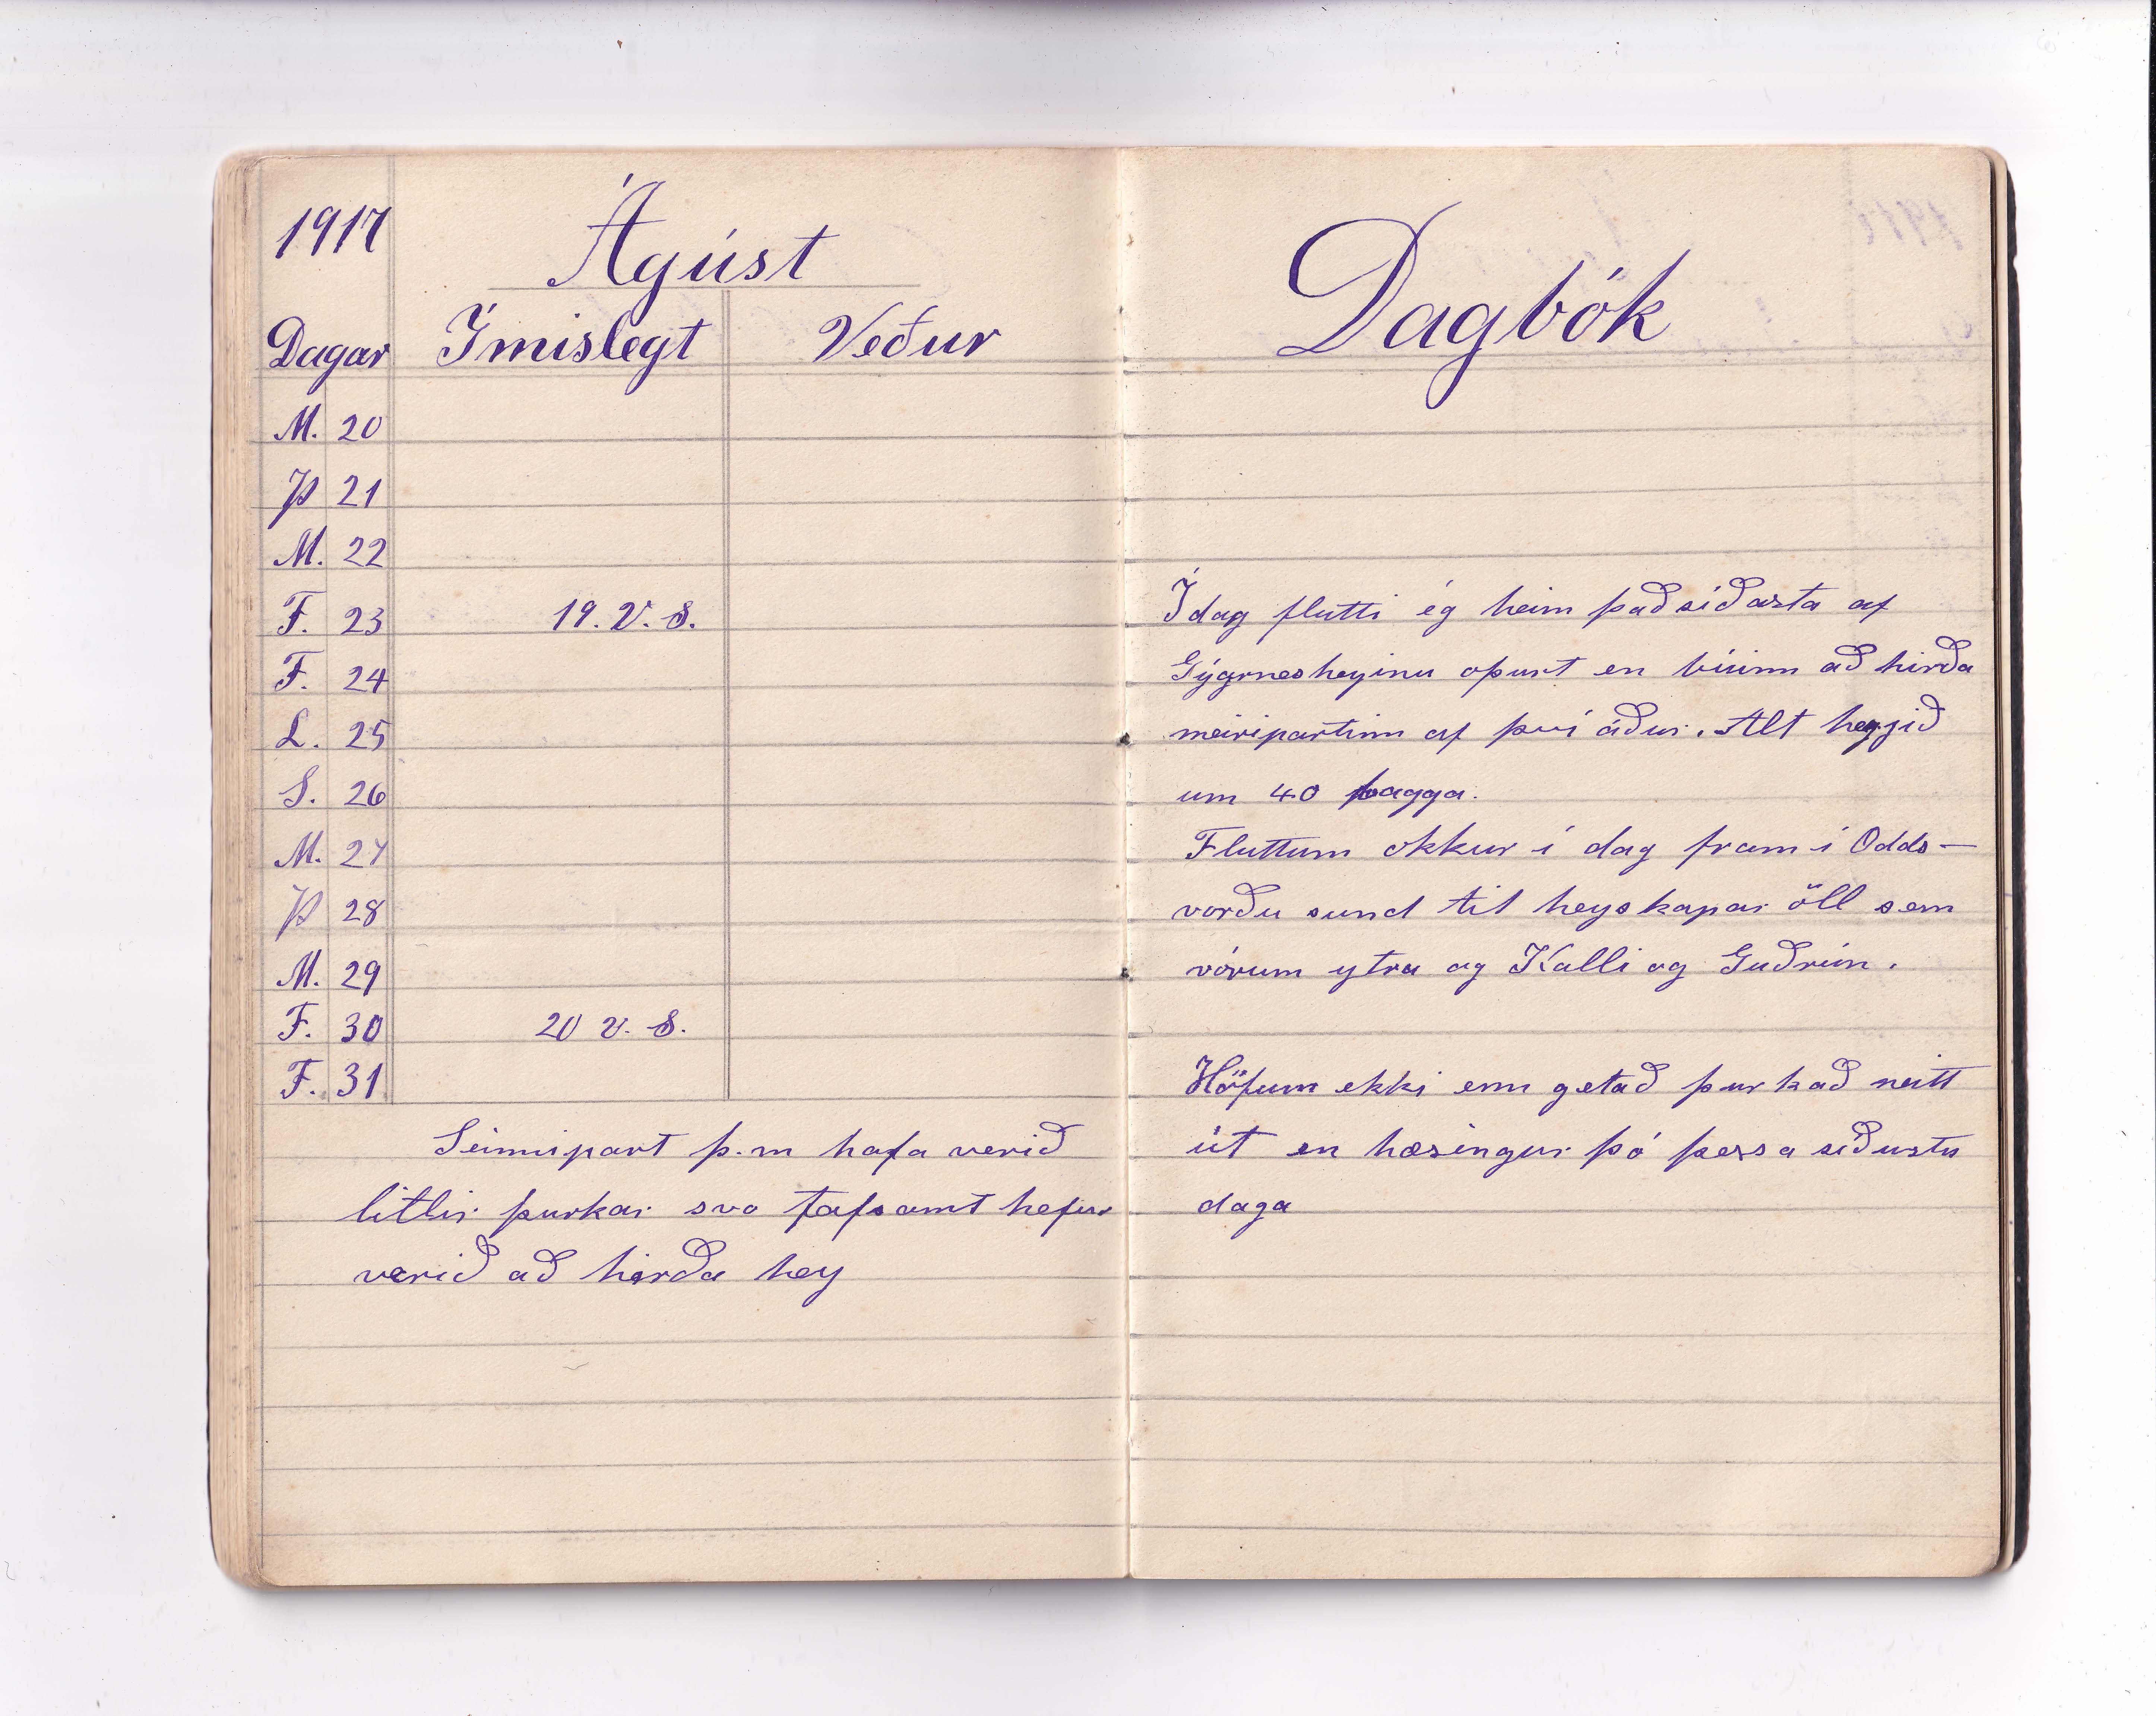 1917
Ágúst
Dagar Ýmislegt Veður
M. 20
Þ 21
M. 22
F. 23 19. V. S.
F. 24
L. 25
S. 26
M. 27
Þ 28
M. 29
F. 30 20 V. S.
F. 31
Seinnipart þ.m hafa verið
litlir þurkar svo tafsamt hefur
verið að hirða hey
Dagbók
Í dag flutti ég heim það síðasta af
Gýgrnesheyinu en búinn að hirða
meiripartinn af því áður. Alt heyjið
um 40 bagga.
Fluttum okkur í dag fram í Odds-
vörðu sund til heyskapar öll sem
vórum ytra og Kalli og Guðrún.
Höfum ekki enn getað þurkað neitt
út en hæsingur þó þessa síðustu
daga